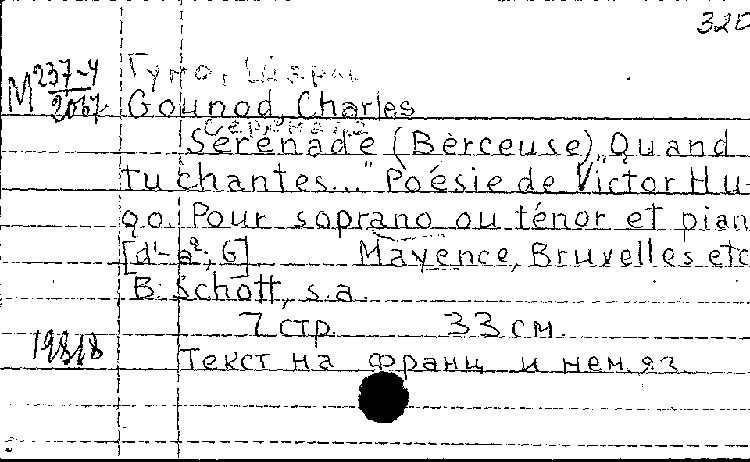 320
М 237-4
2067
Гуно, Шарль
Gounod, Charles
Серенада
Sérénade (Berceuse) „Quand
tu chantes..." Poésie de Victor Hu-
go. Pour soprano ou ténor et pian
[d¹-a²; G] Mayence, Bruxelles etc
B. Schott, s.a.
7 стр. 33 см.
Текст на франц. и нем. яз.